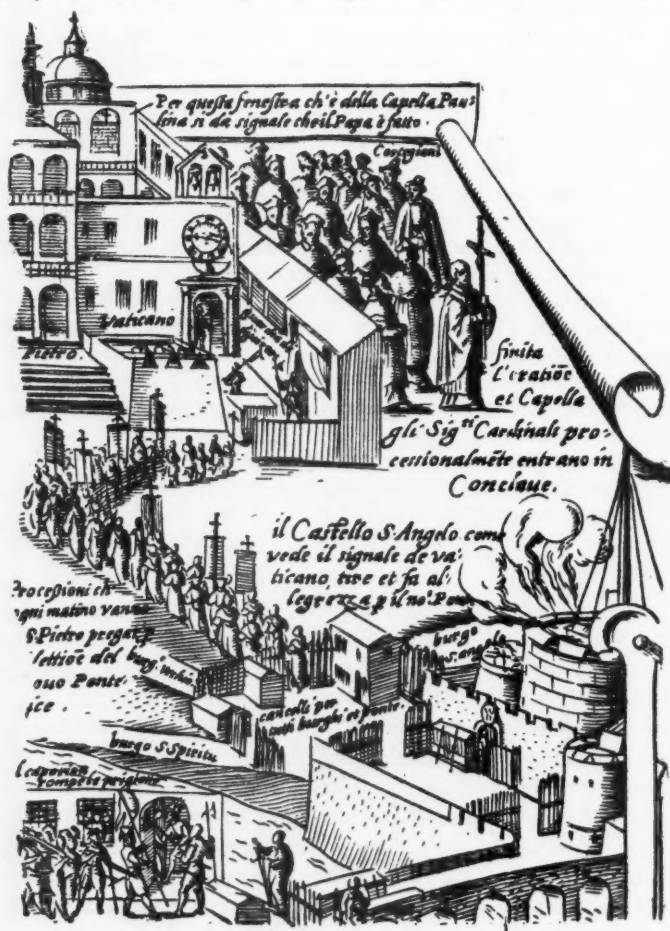 Per questa fenestra ch'è della Capella Pau=
lina si da signale che il Papa è fatto.
Cortegiani
Vaticano
Pietro.
finita
l'oratiōe
et Capella
gli Sig.ri Cardinali pro=
cessionalmēte entrano in
Conclaue.
il Castello S. Angelo come
vede il signale de va:
ticano, tire et fa al:
legrezza p il no.
Procesioni ch
ogni matino vanno
S. Pietro pregar p
lettiōe del
ouo Ponte
ice.
burgo
S. angelo
burg. vechio
cancelli per
tutti burghi et ponte.
burgo S Spiritu
caporion
rompeno prigione